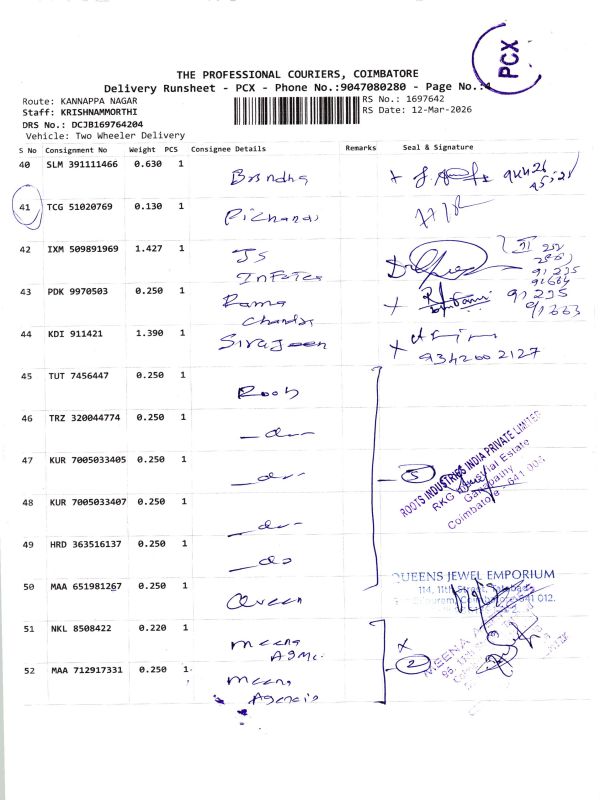 PCX
THE PROFESSIONAL COURIERS, COIMBATORE
Delivery Runsheet - PCX - Phone No.:9047080280 - Page No.:4
Route: KANNAPPA NAGAR
RS No.: 1697642
Staff: KRISHNAMMORTHI
RS Date: 12-Mar-2026
DRS No.: DCJB169764204
Vehicle: Two Wheeler Delivery
S No Consignment No Weight PCS Consignee Details Remarks Seal & Signature
40 SLM 391111466 0.630 1 Brindha
41 TCG 51020769 0.130 1
42 IXM 509891969 1.427 1 JS
43 PDK 9970503 0.250 1 Rama
44 KDI 911421 1.390 1 Sirajeen
9342602127
45 TUT 7456447 0.250 1 Roots
46 TRZ 320044774 0.250 1 -do-
47 KUR 7005033405 0.250 1 -do-
5
ROOTS INDUSTRIES INDIA PRIVATE LIMITED
RKG Industrial Estate
Ganapathy
Coimbatore - 641 006
48 KUR 7005033407 0.250 1 -do-
49 HRD 363516137 0.250 1 -do-
50 MAA 651981267 0.250 1 Queen
QUEENS JEWEL EMPORIUM
114, 11th Street,
641 012.
51 NKL 8508422 0.220 1 Meena
X
2
MEENA
52 MAA 712917331 0.250 1 Meena
Agencis